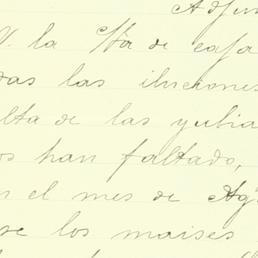 Adjun
V. la
de caja
das las ilusiones
lta de las yubia
os han faltado,
n el mes de Ag
re los maises